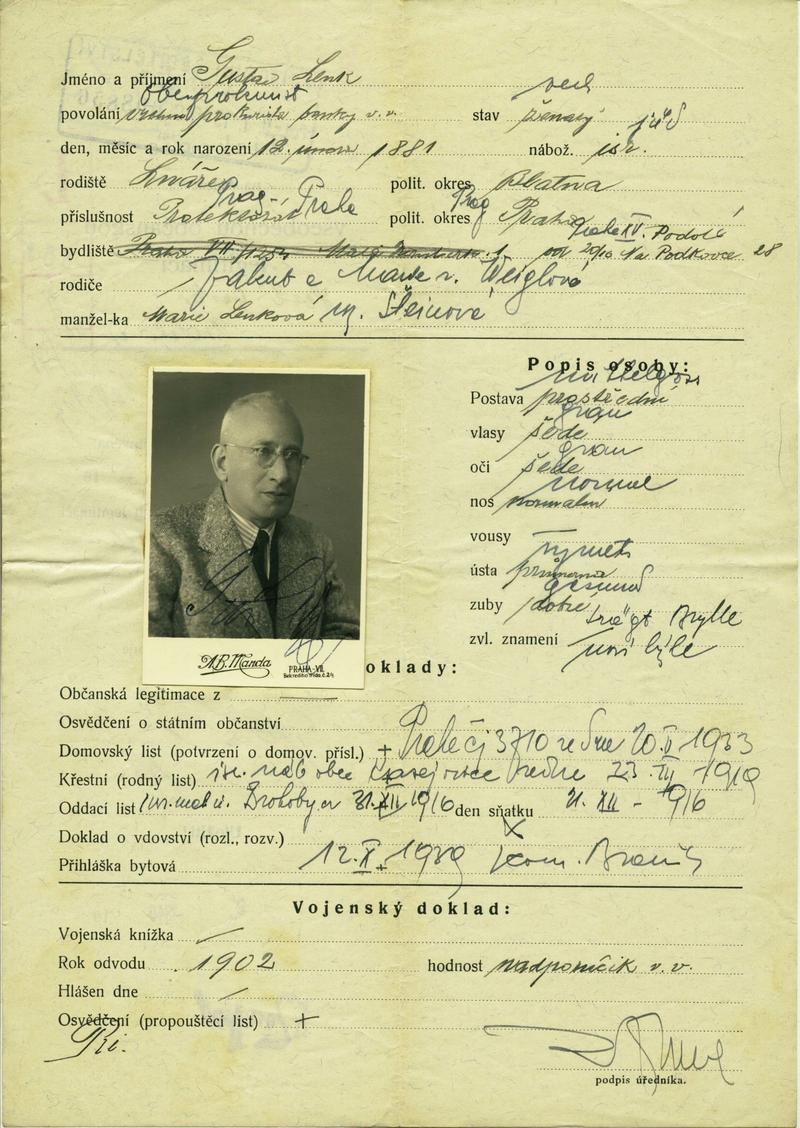 Jméno a příjmení Gustav Lenk
Oberprokurist
povolání vrchní prokurista banky v. v. stav ženatý
den, měsíc a rok narození 12. února 1881 nábož. isr.
rodiště polit. okres Blatna
Prag- Praha Prag
příslušnost Protektorát polit. okres Praha
Praha XV. Podolí
bydliště Praha VII od 20/10 Na Podkovce 28
rodiče Jakub a Marie r. Weiglová
manžel-ka Marie Lenková roz. Steinová
Popis osoby:
Postava prostřední
grau
vlasy šedé
grau
oči šedé
normal
nos normální
vousy
ústa
gesund
zuby dobré
trägt Brylle
zvl. znamení nosí brýle
A.B. Manda PRAHA-VII.
Doklady:
Občanská legitimace z
Osvědčení o státním občanství
Domovský list (potvrzení o domov. přísl.) + Praha čj 3710 ze dne 20.V 1933
Křestní (rodný list) isr. náb. obec ze dne 23. 1919
Oddací list Drohobycz 31.XII 1916 den sňatku 31. XII - 916
Doklad o vdovství (rozl., rozv.)
Přihláška bytová 12.X.1939 kom. Braník
Vojenský doklad:
Vojenská knížka
Rok odvodu 1902 hodnost nadporučík v. v.
Hlášen dne
Osvědčení (propouštěcí list) +
podpis úředníka.